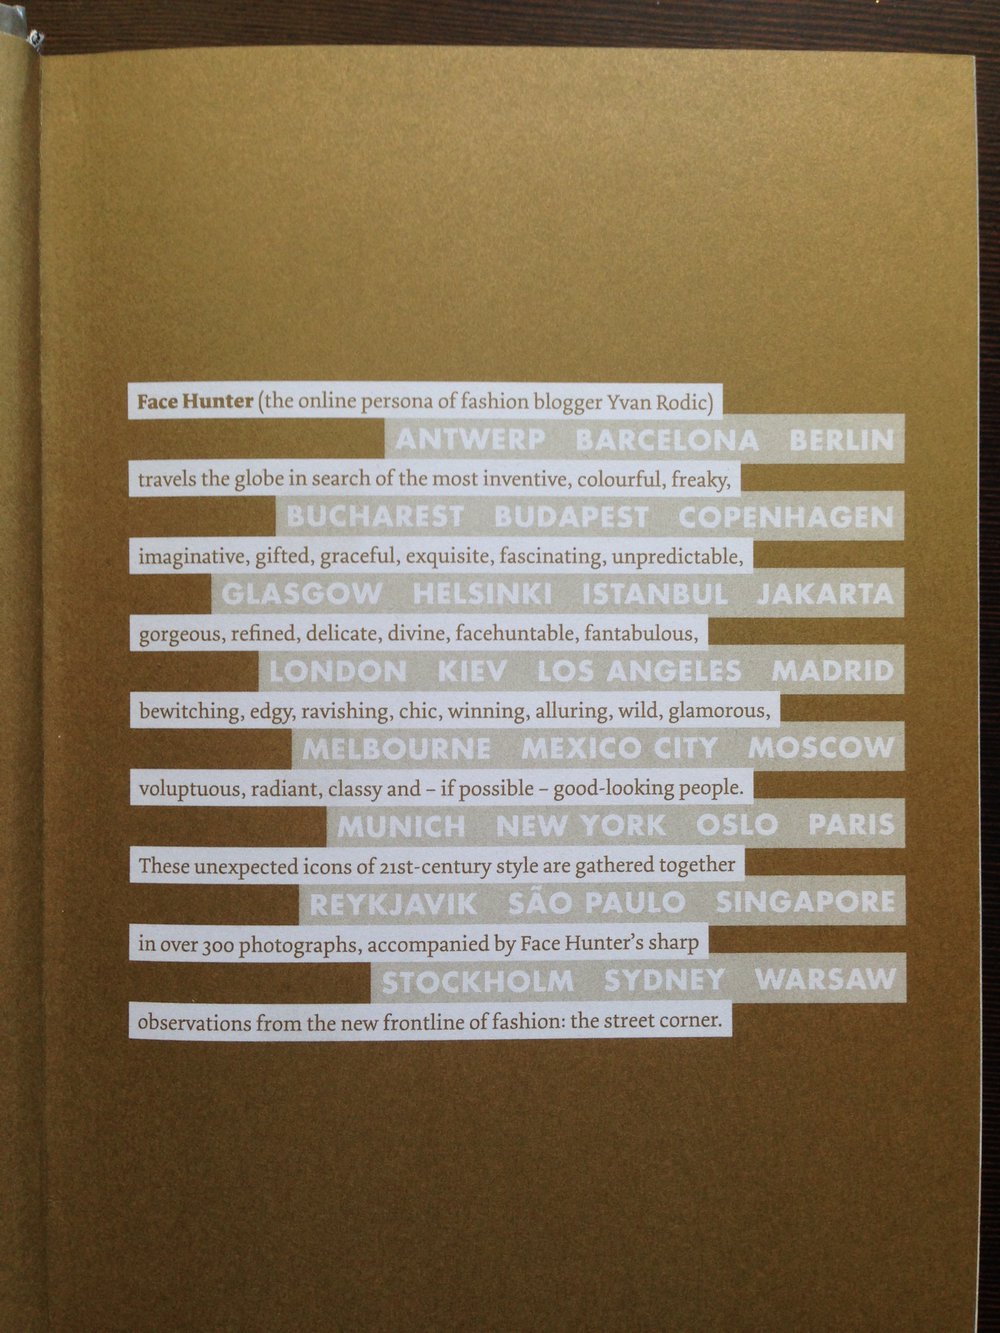 Face Hunter (the online persona of fashion blogger Yvan Rodic)
ANTWERP BARCELONA BERLIN
travels the globe in search of the most inventive, colourful, freaky,
BUCHAREST BUDAPEST COPENHAGEN
imaginative, gifted, graceful, exquisite, fascinating, unpredictable,
GLASGOW HELSINKI ISTANBUL JAKARTA
gorgeous, refined, delicate, divine, facehuntable, fantabulous,
LONDON KIEV LOS ANGELES MADRID
bewitching, edgy, ravishing, chic, winning, alluring, wild, glamorous,
MELBOURNE MEXICO CITY MOSCOW
voluptuous, radiant, classy and – if possible – good-looking people.
MUNICH NEW YORK OSLO PARIS
These unexpected icons of 21st-century style are gathered together
REYKJAVIK SÃO PAULO SINGAPORE
in over 300 photographs, accompanied by Face Hunter's sharp
STOCKHOLM SYDNEY WARSAW
observations from the new frontline of fashion: the street corner.